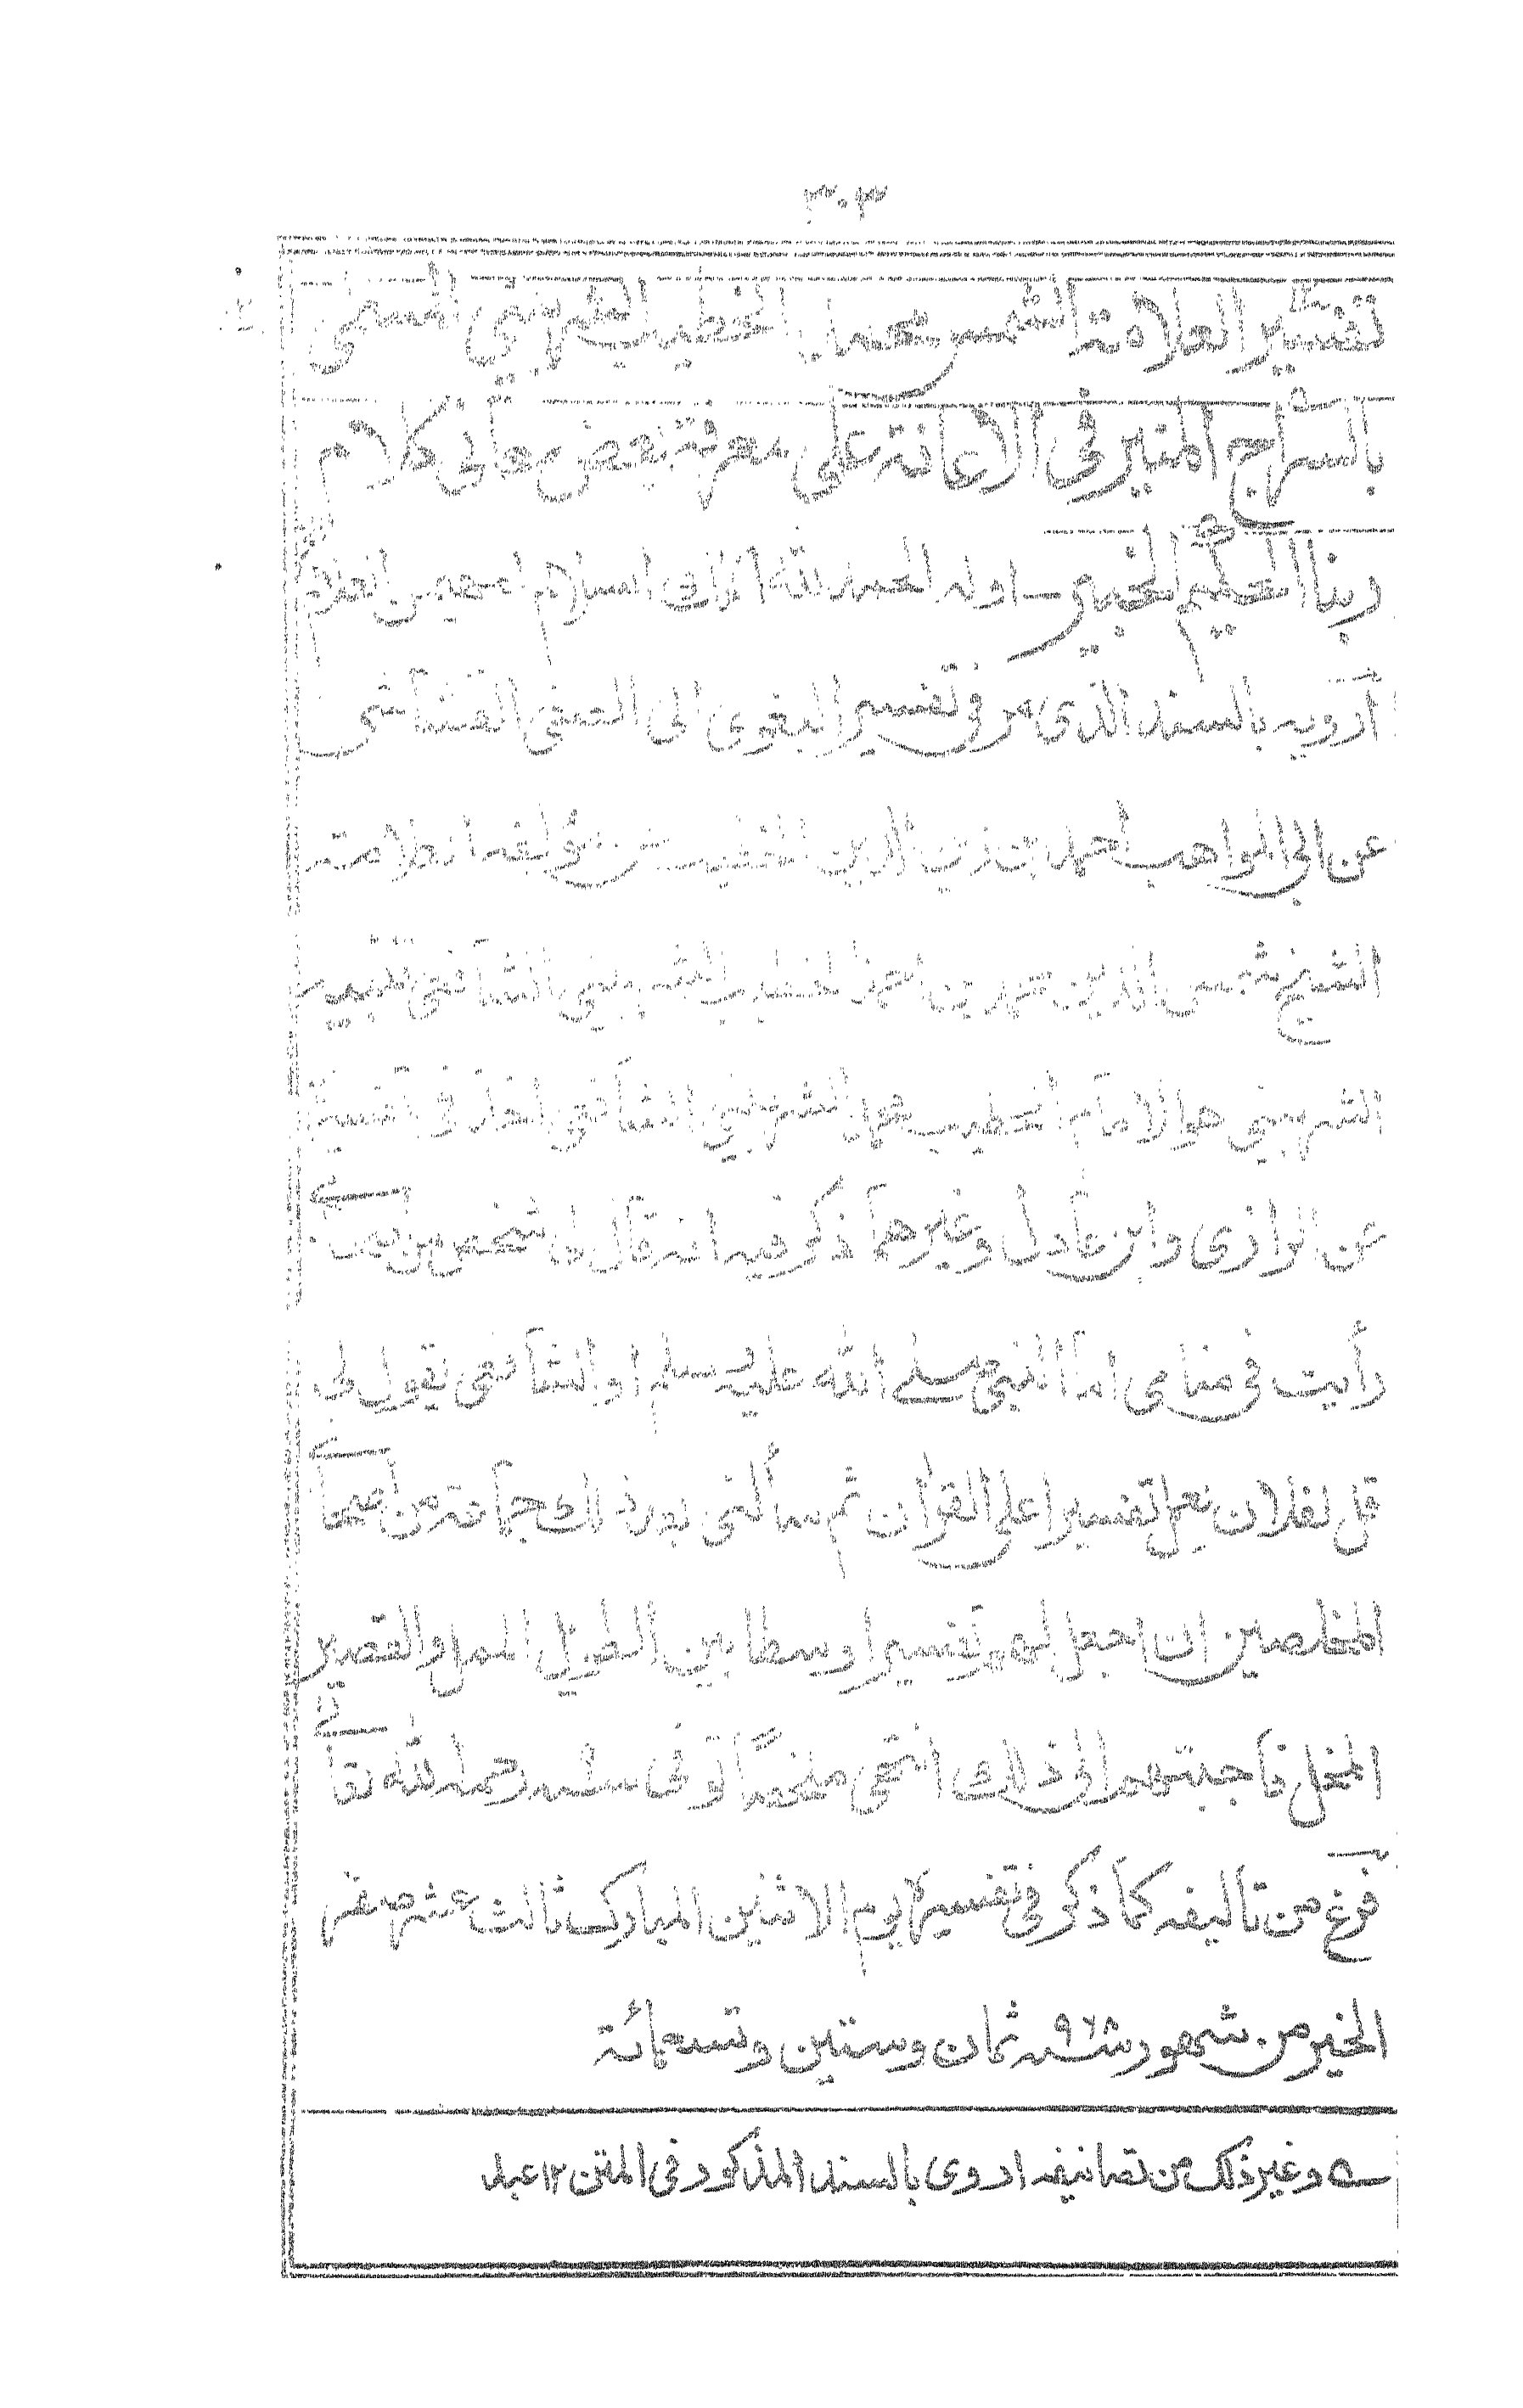 ٣٠٣
تفسير العلامة الشمس محمد الخطيب الشربيني المسمى
بالسراج المنير في الاعانة على معرفة بعض معاني كلام
ربنا الحكيم الخبير اوله الحمد لله الملك السلام المهيمن العلام
أرويه بالسند الذي مر في تفسير البغوى الى الصفى القشاشى
عن ابى المواهب احمد بن زين الدين الخطيب عن مؤلفه العلامة
الشيخ شمس الدين محمد بن احمد الخطيب الشربيني الشافعي تفسير
الشربيني هو الامام الخطيب محمد الشربيني الشافعي اخذ في تفسيره
عن الرازى وابن عادل وغيرهما ذكر فيه انه قال لى شخص من
رأيت في منامى اما النبي صلے الله عليه وسلم او الشافعى يقول لى
قل لفلان يعمل تفسيرا على القرآن ثم سألنى بعد ذلك جماعة من أصحابے
المخلصين ان اجعل لهم تفسيرا وسطا بين الطويل الممل والقصير
المخل فاجبتهم الى ذلك انتهى ملخصاً توفى سنة رحمه لله تعالے
فرغ من تأليفه كما ذكر في تفسيره يوم الاثنين المبارك ثالث عشر صفر
الخير من شهور سنة ٩٦٨ ثمان وستين وتسعمائة
ه وغير ذلك من تصانيفه اروى بالسند المذكور في المتن ١٢ عبد